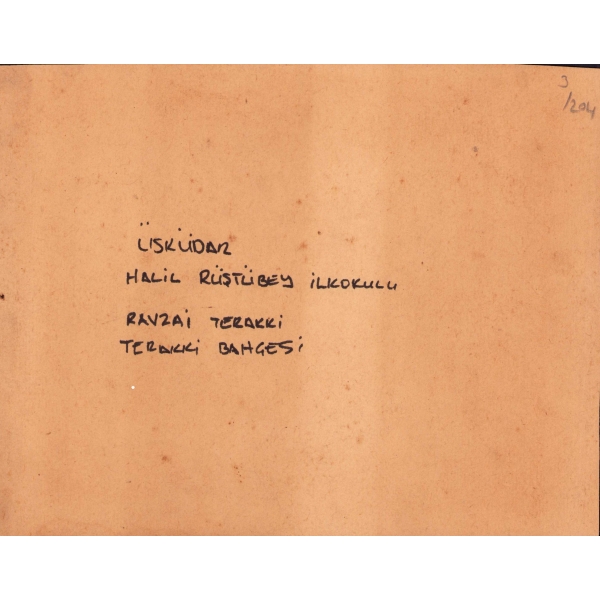 3
/204
ÜSKÜDAR
HALİL RÜŞTÜBEY İLKOKULU
RAVZAİ TERAKKİ
TERAKKİ BAHÇESİ